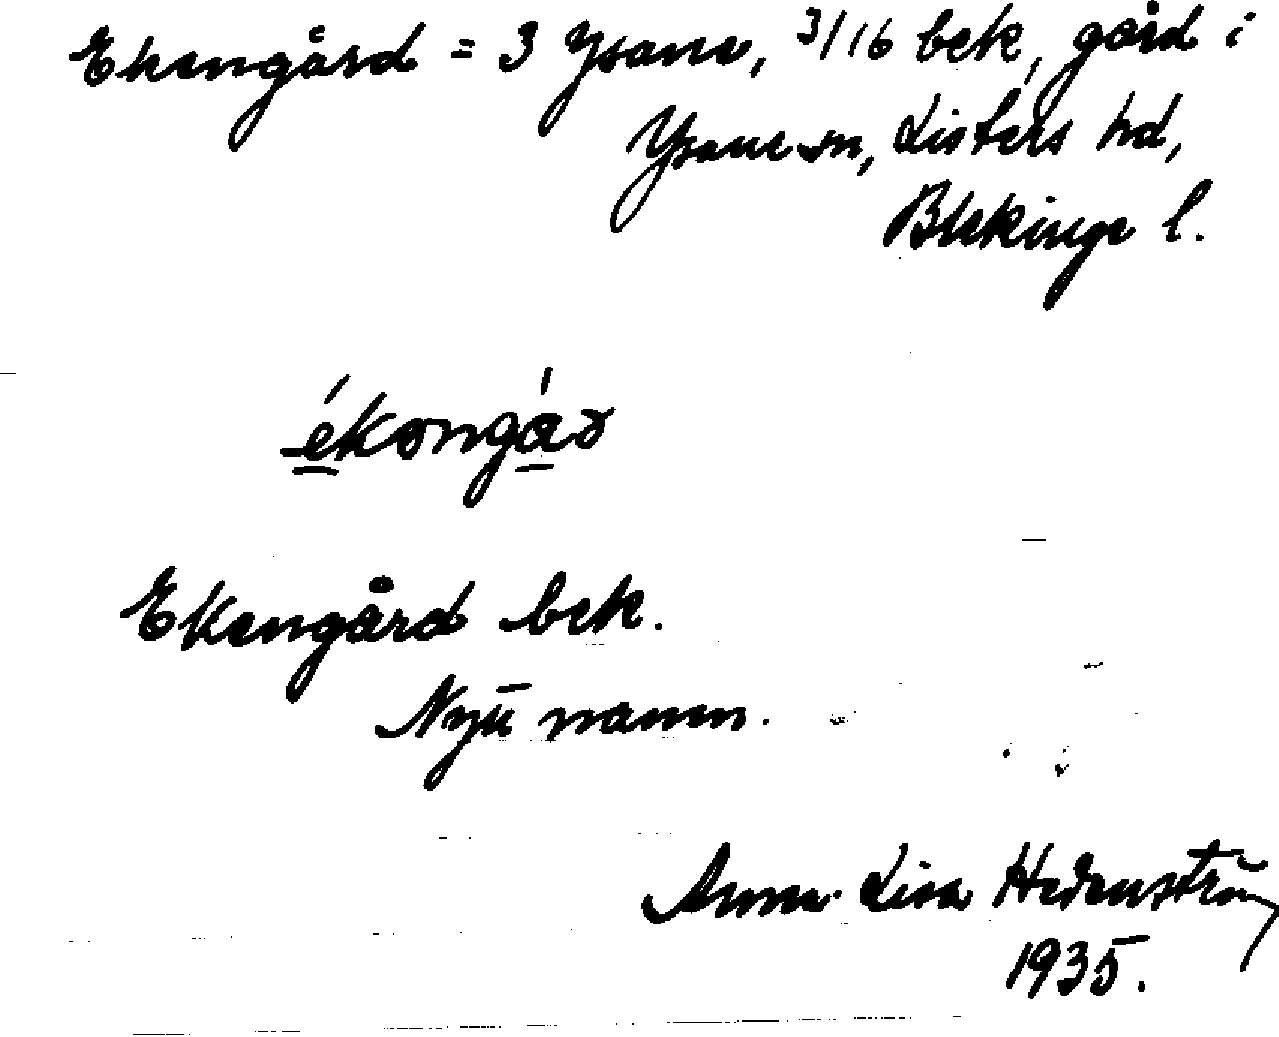 Ekengård = 3 Ysane, 3/16 bek, gård i
Ysane sn, Listers hd,
Blekinge l.
ékəngáꝛ
Ekengård bek.
Nytt namn.
Anna-Lisa Hedenström
1935.